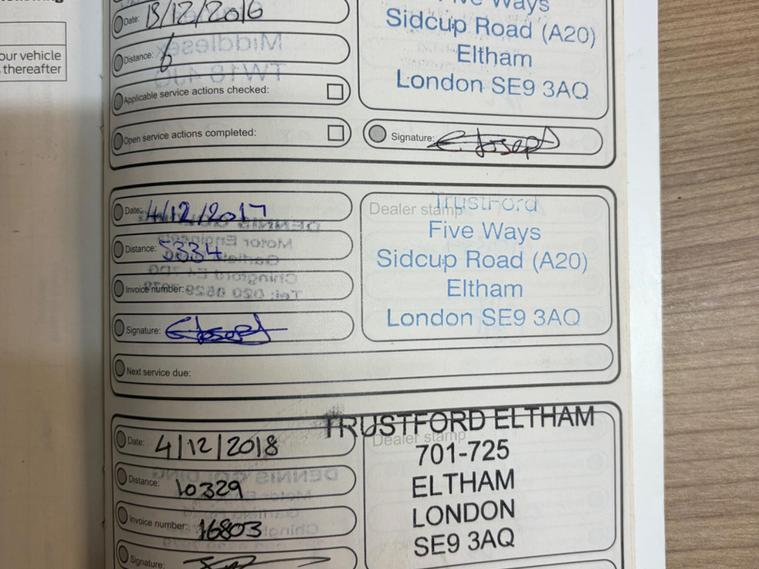 our vehicle
thereafter
Date: 13/12/2016
Distance: 6
Applicable service actions checked:
Open service actions completed:
Five Ways
Sidcup Road (A20)
Eltham
London SE9 3AQ
Signature: E Joseph
Date: 4/12/2017
Distance: 5334
Invoice number:
Signature: E Joseph
Next service due:
Dealer stamp
TrustFord
Five Ways
Sidcup Road (A20)
Eltham
London SE9 3AQ
Date: 4/12/2018
Distance: 10329
Invoice number: 16803
Signature:
Dealer stamp
TRUSTFORD ELTHAM
701-725
ELTHAM
LONDON
SE9 3AQ